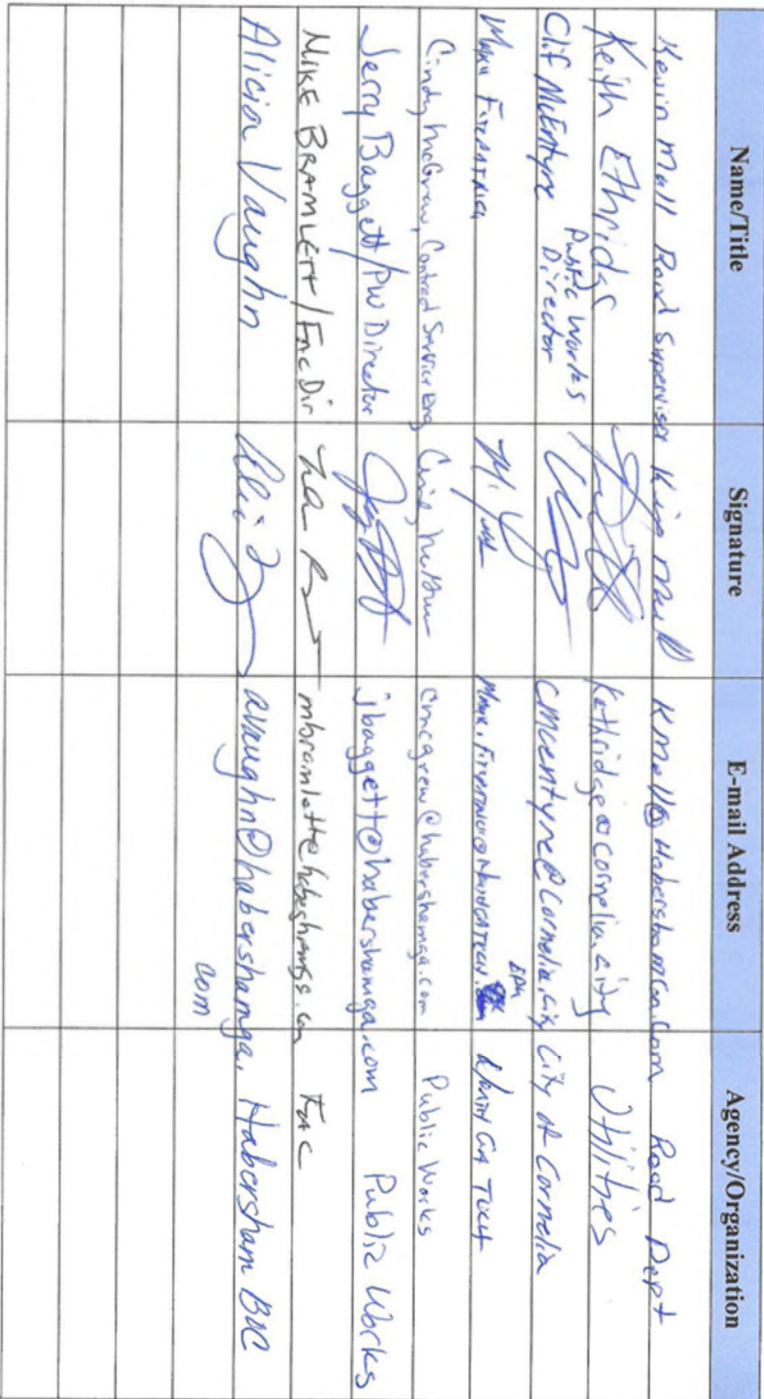 Name/Title Signature E-mail Address Agency/Organization
Kevin Mall Road Supervisor Kevin Mall Kmall@Habershamga.Com Road Dept
Keith Ethridge kethridge@cornelia.city Utilities
Clif McEntyre Public Works Director cmcentyre@cornelia.city City of Cornelia
Mark Fitzpatrick North GA Tech
Cindy McGrew, Contract Service Cindy McGrew cmcgrew@habershamga.com Public Works
Jerry Baggett/PW Director jbaggett@habershamga.com Public Works
MIKE BRAMLETT/Fac Dir mbramlett@habershamga.com Fac
Alicia Vaughn avaughn@habershamga.com Habersham BOC